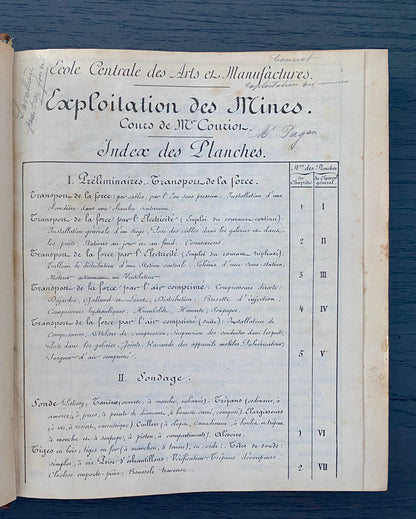 Couriot
Exploitation des mines
Ecole Centrale des Arts et Manufactures.
Exploitation des Mines.
Cours de Mr Couriot.
Mr Pagan
Index des Planches.
Nos des Planches
du Chapitre
du Cours général.
I. Préliminaires. Transport de la force.
Transport de la force par câbles, par l'eau sous pression. Installation d'une
machine dans une chambre souterraine. 1 I
Transport de la force par l'Electricité (Emploi du courant continu).
Installation générale d'un siège; Pose des câbles dans les galeries et dans
les puits. Stations au jour et au fond. Connexions. 2 II
Transport de la force par l'Electricité (Emploi du courant triphasé).
Tableau de distribution d'une station centrale. Schéma d'une sous-station.
Moteur actionnant un Ventilateur. 3 III
Transport de la force par l'air comprimé. Compresseurs directs:
Dujardin, Galland et Distribution, Busette d'injection;
Compresseurs hydrauliques: Humboldt, Hanarte; Soupapes 4 IV
Transport de la force par l'air comprimé (suite). Installation de
Compresseurs, d'Ateliers de compression; Suspension des conduites dans les puits,
Pose dans les galeries; Joints; Raccords des appareils mobiles; Pulvérisateur;
Purgeur d'air comprimé. 5 V
II. Sondage.
Sonde Palissy, Tarières (ouverte, à mouche, rubanée). Trépans (ordinaire, à
amorce, à joues, à pointe de diamant, à bonnet carré, composé). Elargisseurs
(à vis, à ressort, excentrique). Cuillers (à clapet, à boulet, en tupan,
à mouche et à soupape, à piston, à compartiments). Alésoirs. 1 VI
Tiges en bois; tiges en fer (à manchon, à tenon), en corde. Têtes de sonde:
simples, à vis. Prise d'échantillons. Vérificateur. Trépans découpeurs
Cloche emporte-pièce; Boussole traceuse. 2 VII